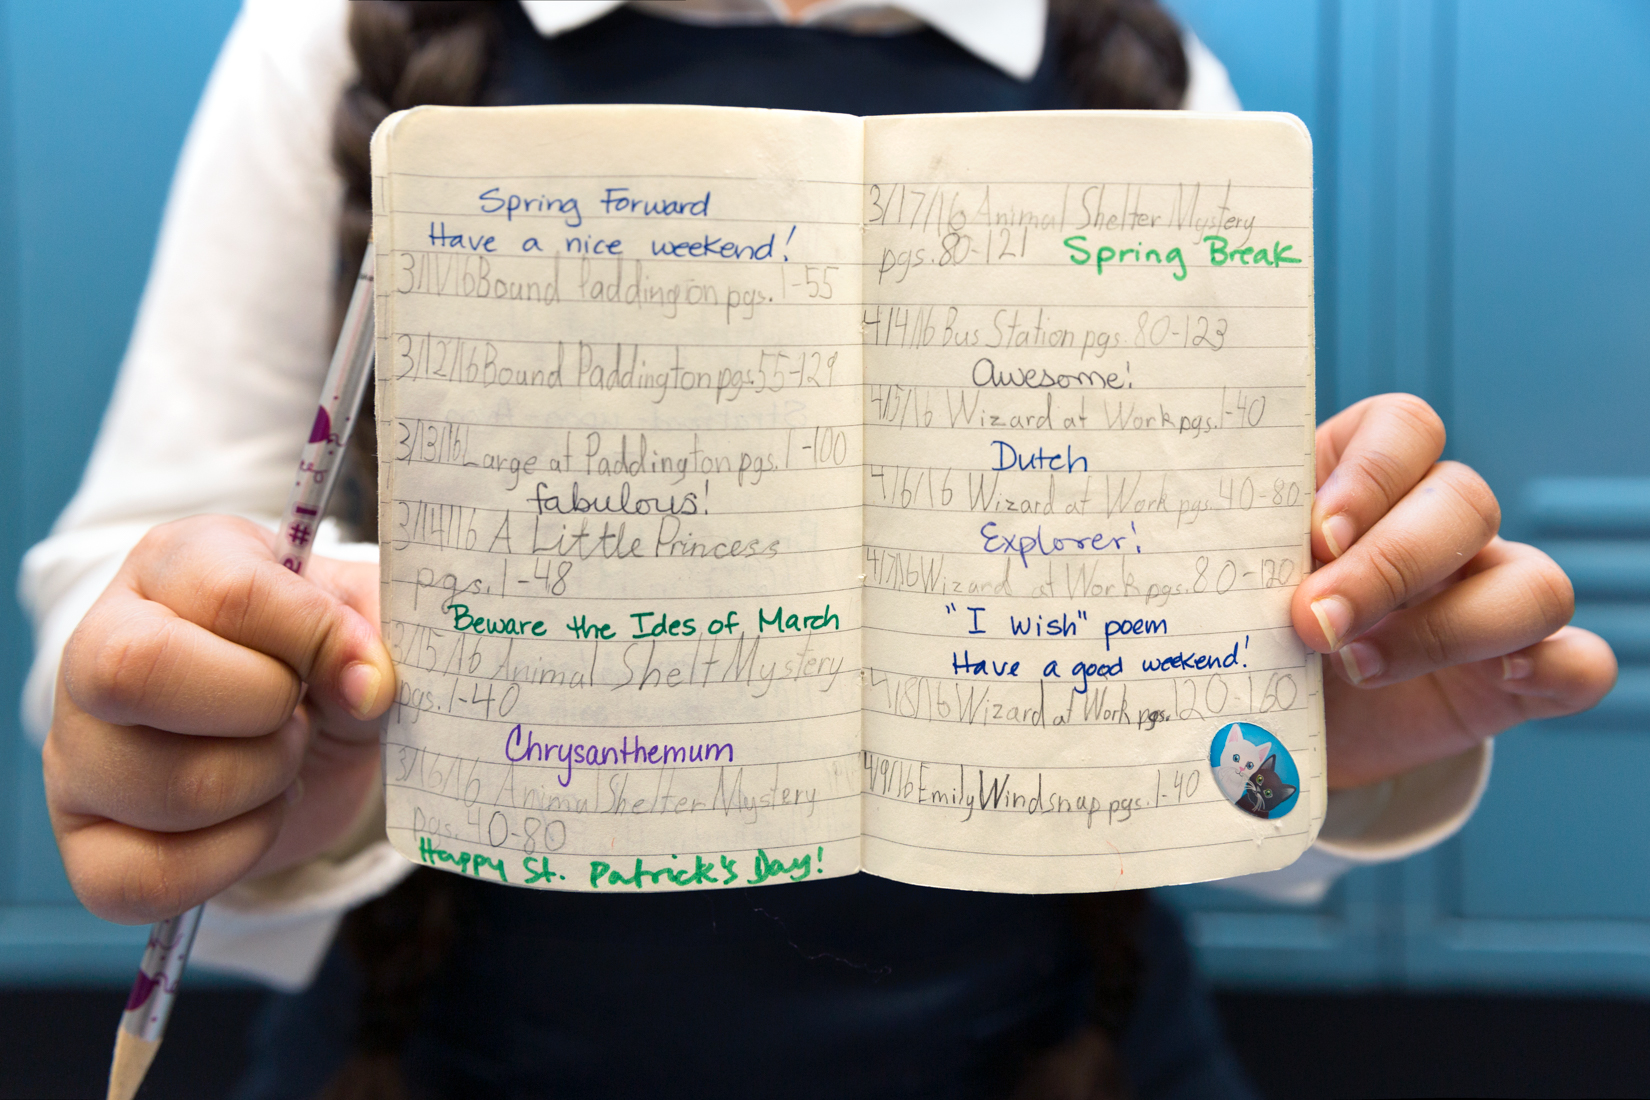 Spring Forward
Have a nice weekend!
3/11/16 Bound Paddington pgs. 1-55
3/12/16 Bound Paddington pgs. 55-129
3/13/16 Large at Paddington pgs. 1-100
fabulous!
3/14/16 A Little Princess
pgs. 1-48
Beware the Ides of March
3/15/16 Animal Shelt Mystery
pgs. 1-40
Chrysanthemum
3/16/16 Animal Shelter Mystery
pgs. 40-80
Happy St. Patrick's Day!
3/17/16 Animal Shelter Mystery
pgs. 80-121 Spring Break
4/4/16 Bus Station pgs. 80-123
Awesome!
4/5/16 Wizard at Work pgs. 1-40
Dutch
4/6/16 Wizard at Work pgs. 40-80
Explorer!
4/7/16 Wizard at Work pgs. 80-120
"I wish" poem
Have a good weekend!
4/8/16 Wizard at Work pgs. 120-160
4/9/16 Emily Windsnap pgs. 1-40
#1